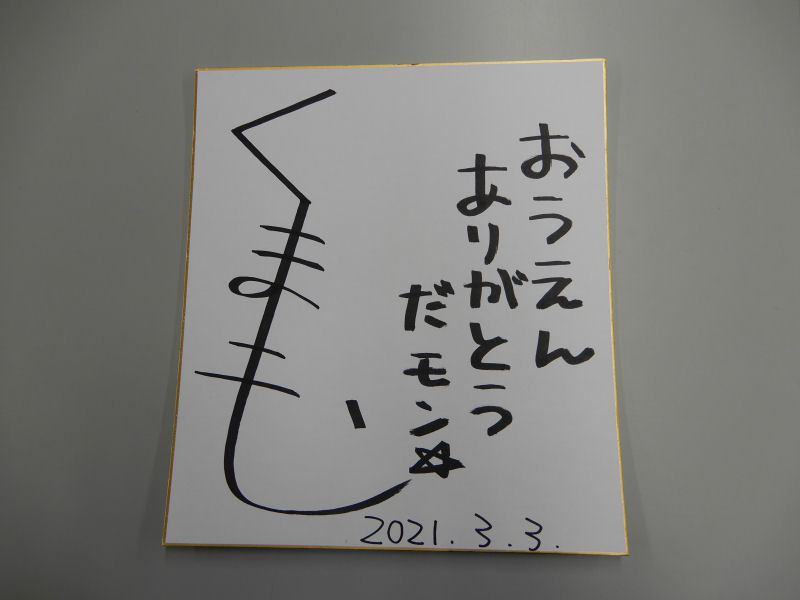 おうえん
ありがとう
だモン☆
くまモン
2021.3.3.